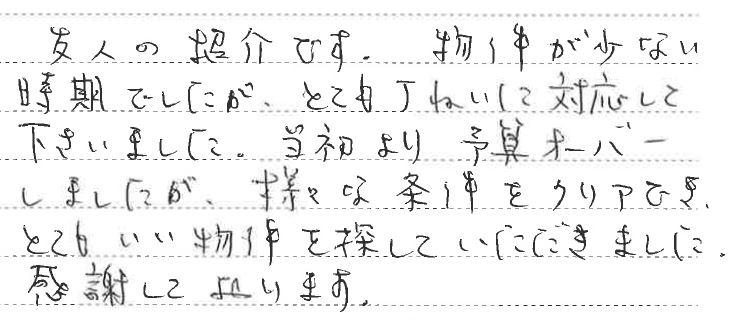 友人の紹介です。 物件が少ない
時期でしたが、とても丁ねいに対応して
下さいました。当初より 予算オーバー
しましたが、様々な条件をクリアでき、
とてもいい物件を探していただきました。
感謝しております。